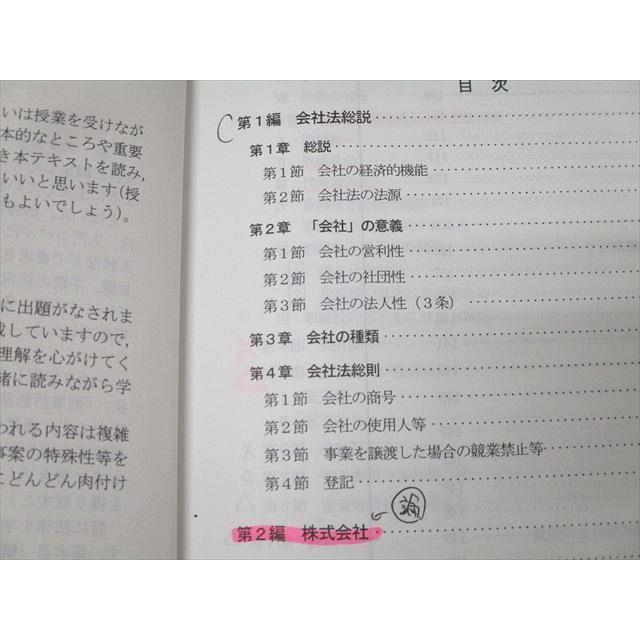 いは授業を受けなが
本的なところや重要
き本テキストを読み,
いいと思います(授
もよいでしょう)。
に出題がなされま
成していますので,
理解を心がけてく
緒に読みながら学
われる内容は複雑
事案の特殊性等を
こどんどん肉付け
目 次
第1編 会社法総説
第1章 総説
第1節 会社の経済的機能
第2節 会社法の法源
第2章 「会社」の意義
第1節 会社の営利性
第2節 会社の社団性
第3節 会社の法人性(3条)
第3章 会社の種類
第4章 会社法総則
第1節 会社の商号
第2節 会社の使用人等
第3節 事業を譲渡した場合の競業禁止等
第4節 登記
第2編 株式会社